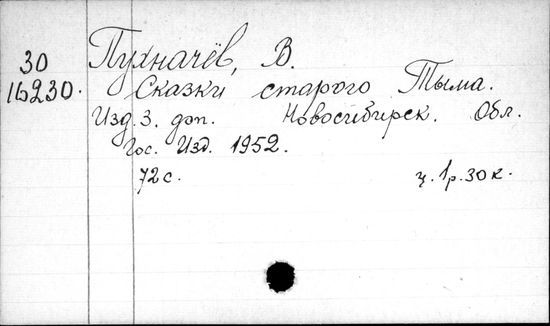 30
16230.
Пухначёв, В.
Сказки старого Тыма.
Изд. 3. доп. Новосибирск. Обл.
Гос. Изд. 1952.
72 с. ц. 1 р. 30 к.